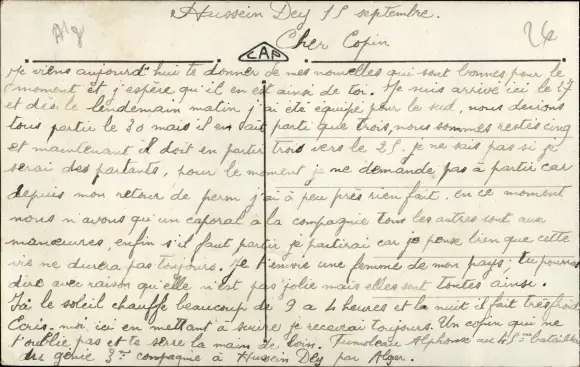 Alg
26
Hussein Dey 15 septembre.
Cher Copin
CAP
Je viens aujourd'hui te donner de mes nouvelles qui sont bonnes pour le
moment et j'espère qu'il en est ainsi de toi. Je suis arrivé ici le 17
et dès le lendemain matin j'ai été équipé pour le sud, nous devions
tous partir le 30 mais il en sait parti que trois, nous sommes restés cinq
et maintenant il doit en partir trois vers le 25, je ne sais pas si je
serai des partants, pour le moment je ne demande pas à partir car
depuis mon retour de perm j'ai à peu près rien fait. en ce moment
nous n'avons qu'un caporal à la compagnie tous les autres sont aux
manœuvres, enfin s'il faut partir je partirai car je pense bien que cette
vie ne durera pas toujours. Je t'envoie une femme de mon pays; tu pourras
dire avec raison qu'elle n'est pas jolie mais elles sont toutes ainsi.
Ici le soleil chauffe beaucoup de 9 a 4 heures et la nuit il fait très froid
Écris-moi ici en mettant à suivre je recevrai toujours. Un copin qui ne
t'oublie pas et te serre la main de loin. Fumoleau Alphonse au 45me bataillon
du génie 3me compagnie à Hussein Dey par Alger.